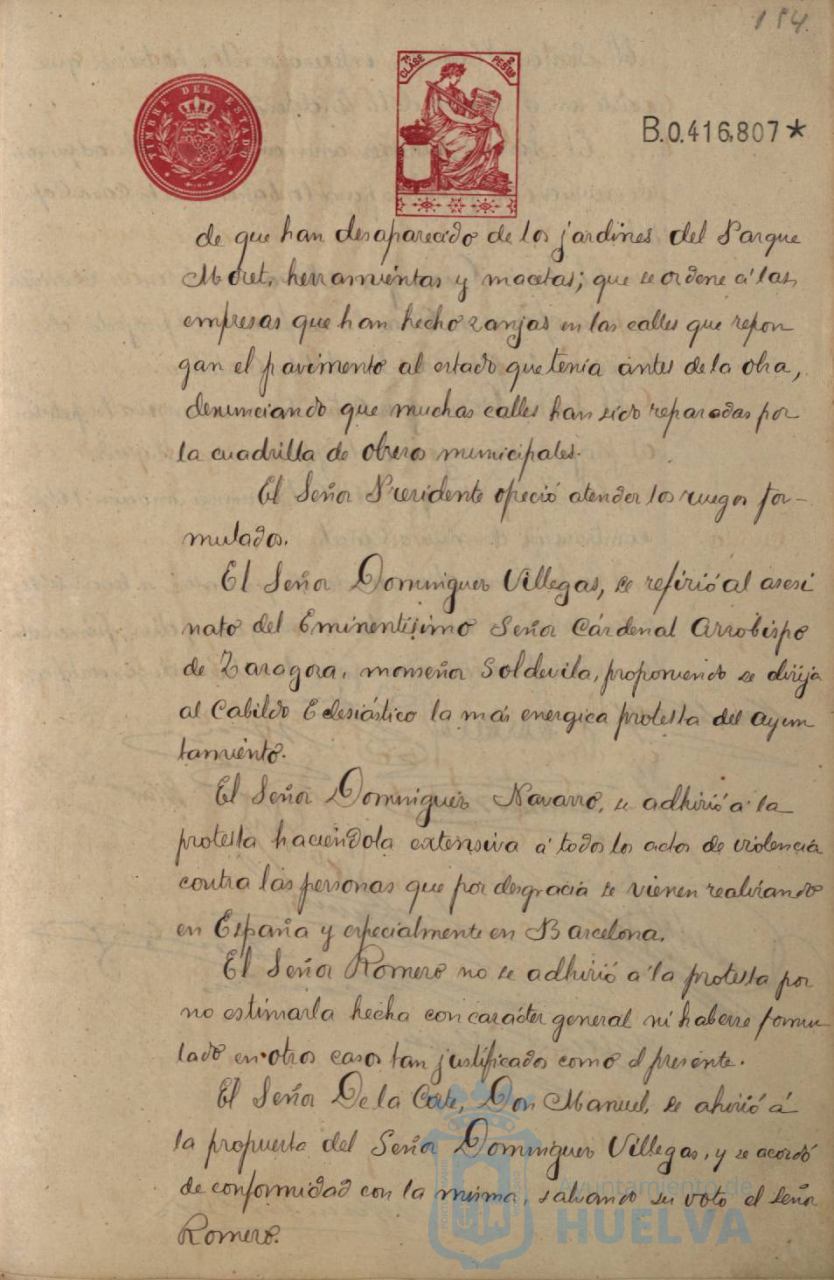 184.
TIMBRE DEL ESTADO
7ª CLASE 2 PESETAS
B.0.416,807*
de que han desaparecido de los jardines del Parque
Moret, herramientas y macetas; que se ordene á las
empresas que han hecho zanjas en las calles que repon
gan el pavimento al estado que tenía antes de la obra,
denunciando que muchas calles han sido reparadas por
la cuadrilla de obreros municipales.
El Señor Presidente ofreció atender los ruegos for-
mulados.
El Señor Dominguez Villegas, se refirió al asesi
nato del Eminentísimo Señor Cárdenal Arzobispo
de Zaragoza, monseñor Soldevila, proponiendo se dirija
al Cabildo Eclesiástico la más energica protesta del ayun
tamiento.
El Señor Dominguez Navarro, se adhirió á la
protesta haciéndola extensiva á todos los actos de violencia
contra las personas que por desgracia se vienen realizando
en España y especialmente en Barcelona.
El Señor Romero no se adhirió á la protesta por
no estimarla hecha con carácter general ni haberse formu
lado en otros casos tan justificados como el presente.
El Señor De la Corte, Don Manuel, se ahirió á
la propuesta del Señor Dominguez Villegas, y se acordó
de conformidad con la misma, salvando su voto el señor
Romero.
Ayuntamiento de
HUELVA